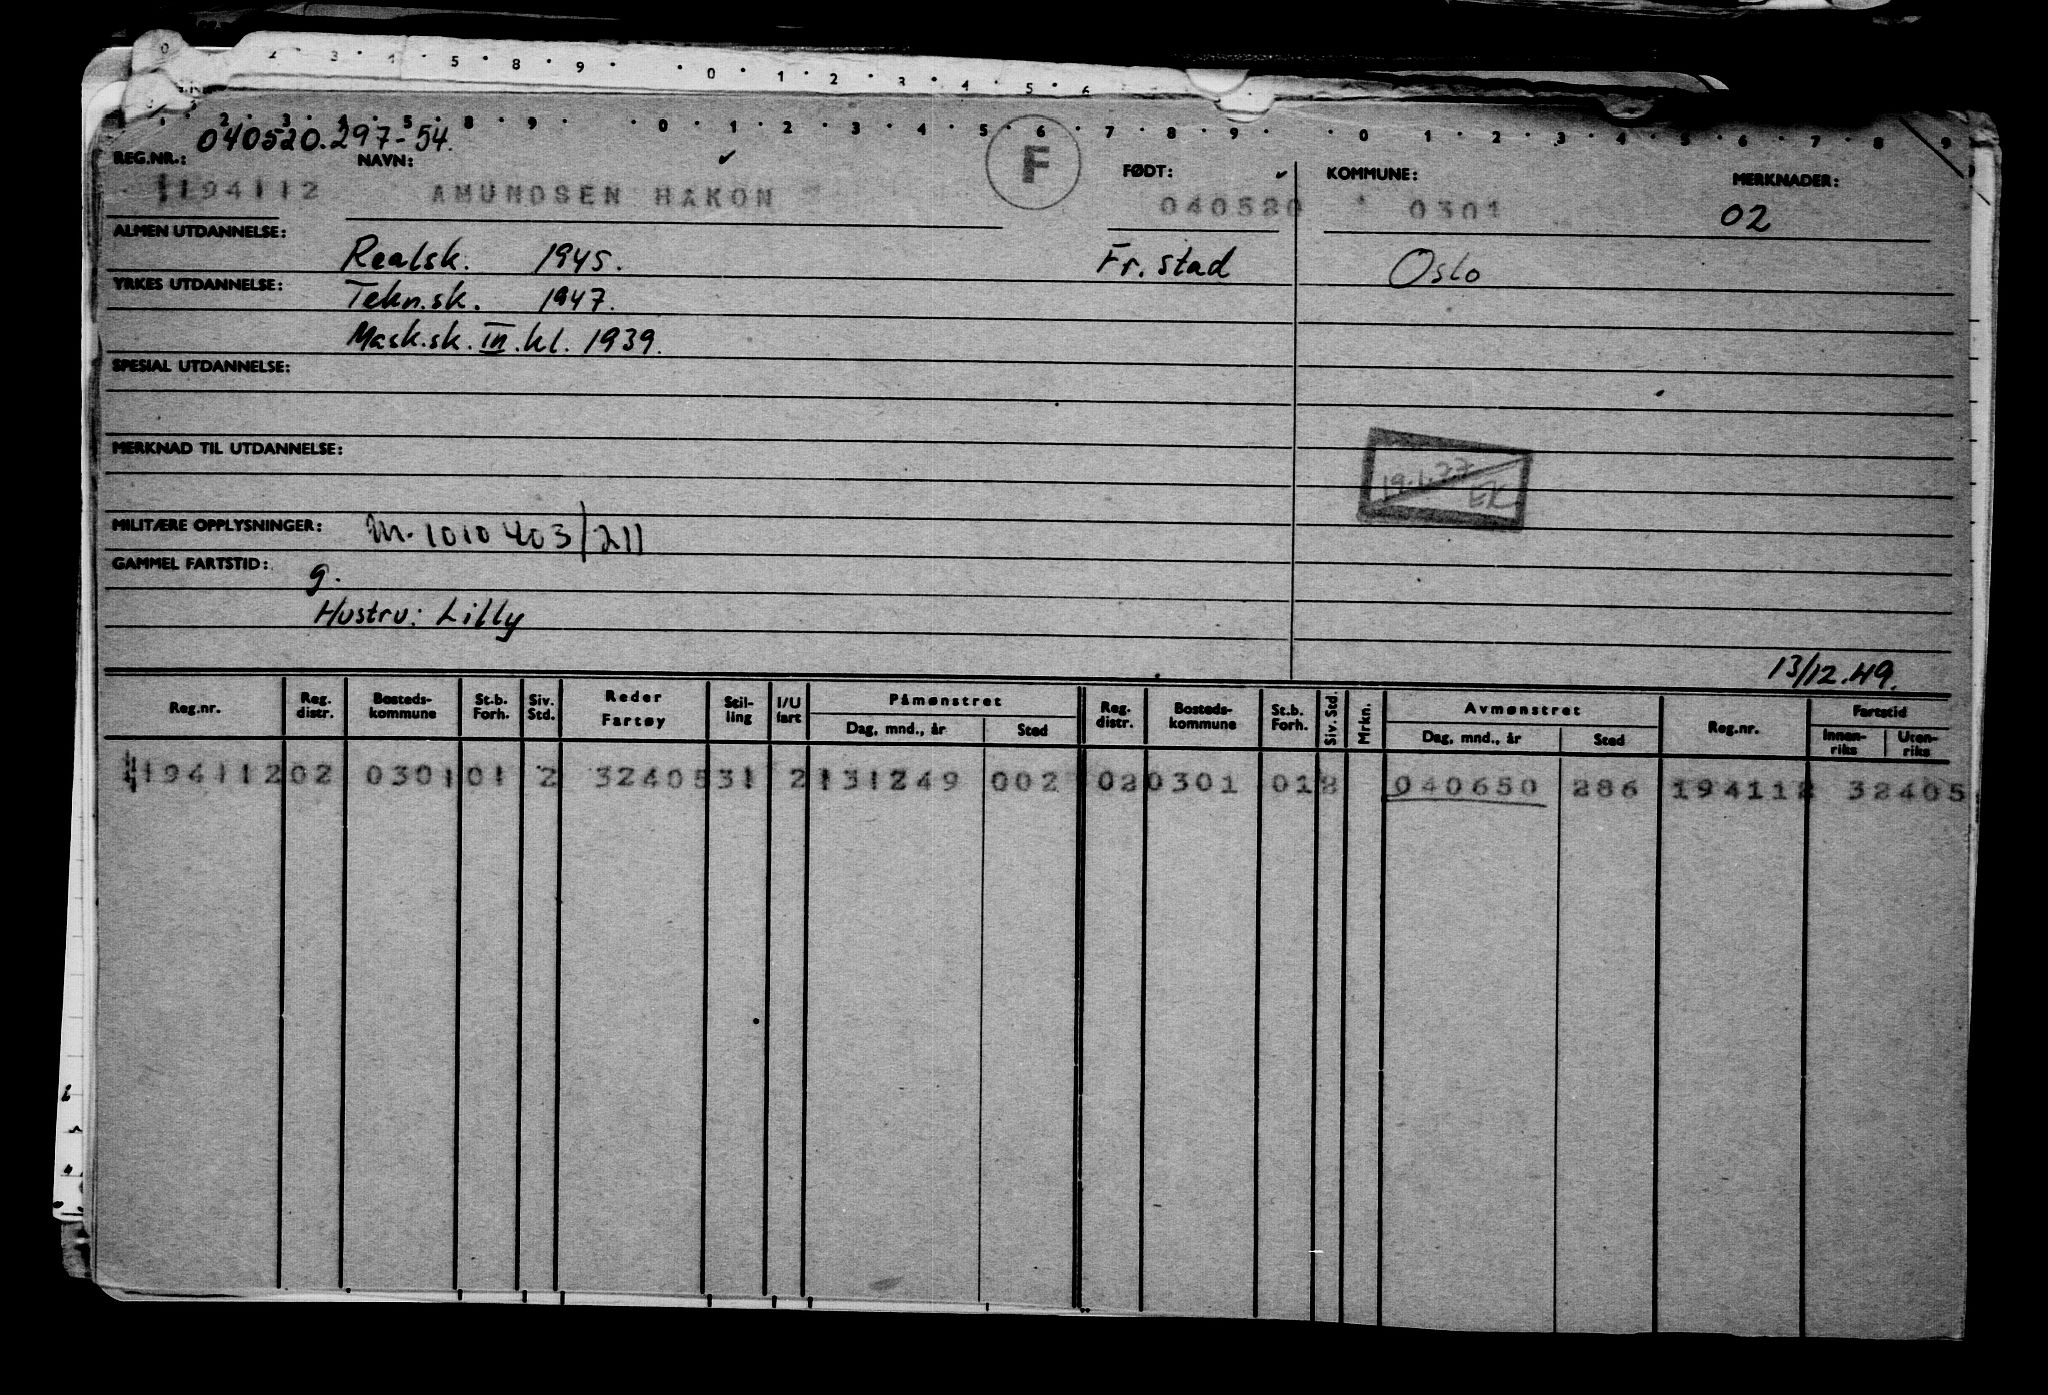 2 3 4 5 8 9 0 1 2 3 4 5 6
2 3 4 5 8 9 0 1 2 3 4 5 6 7 8 9 0 1 2 3 4 5 6 7 8 9
040520.297-54.
REG.NR.: NAVN: F FØDT: KOMMUNE: MERKNADER:
194112 AMUNDSEN HAKON 040520 0301 02
ALMEN UTDANNELSE: Realsk. 1945. Fr.stad Oslo
YRKES UTDANNELSE: Tekn.sk. 1947.
Mask.sk. III.kl. 1939.
SPESIAL UTDANNELSE:
MERKNAD TIL UTDANNELSE:
19.1.77 EK
MILITÆRE OPPLYSNINGER: M. 1010403/211
GAMMEL FARTSTID: g.
Hustru: Lilly
13/12.49.
Reg.nr. Reg. distr. Bosteds-kommune St.b. Forh. Siv. Std. Reder Fartøy Stil-ling I/U fart Påmønstret Dag, mnd., år Sted Reg. distr. Bosteds-kommune St.b. Forh. Siv. Std. Mrkn. Avmønstret Dag, mnd., år Sted Reg.nr. Fartstid Innen-riks Uten-riks
194112 02 0301 01 2 32405 31 2 131249 002 02 0301 01 040650 286 194112 32405